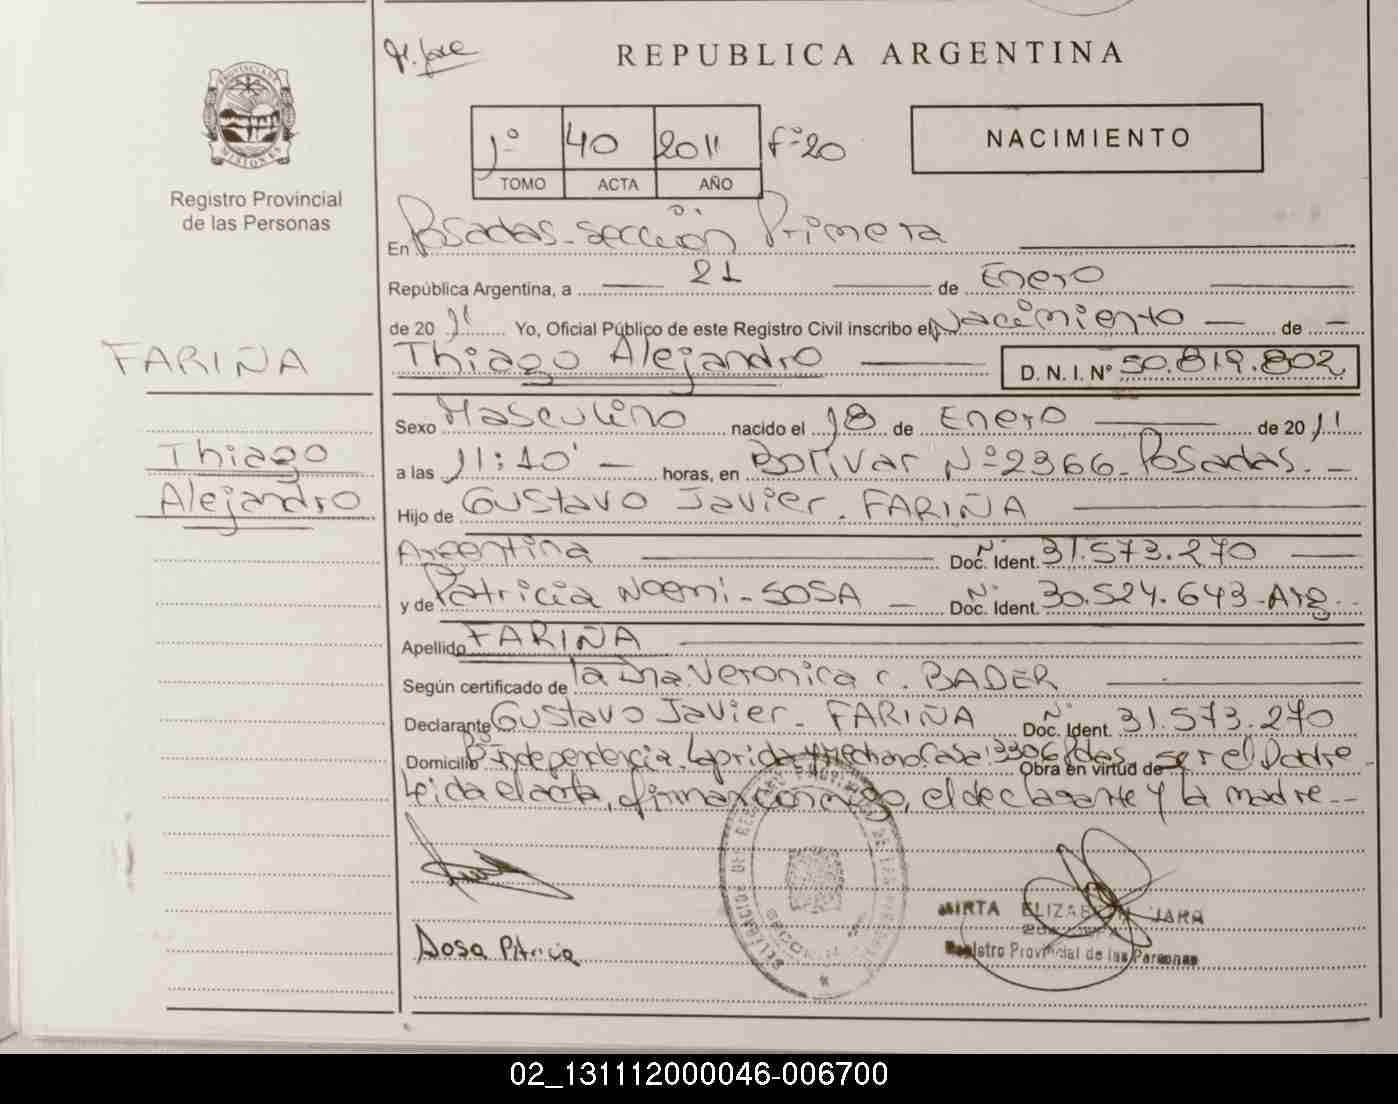 PROVINCIA DE
MISIONES
Registro Provincial
de las Personas
FARIÑA
Thiago
Alejandro
REPUBLICA ARGENTINA
1º 40 2011 fº 20
TOMO ACTA AÑO
NACIMIENTO
En Posadas - Sección Primera
República Argentina, a 21 de Enero
de 20 11 Yo, Oficial Público de este Registro Civil inscribo el Nacimiento — de —
Thiago Alejandro D. N. I. Nº 50.819.802
Sexo Masculino nacido el 18 de Enero de 20 11
a las 11:10' — horas, en Bolivar Nº 2366 - Posadas. —
Hijo de Gustavo Javier. FARIÑA
Argentina Doc. Ident. Nº 31.573.270
y de Patricia Noemi - SOSA — Doc. Ident. Nº 30.524.643 - Arg.
Apellido FARIÑA
Según certificado de la Dra. Veronica C. BADER
Declarante Gustavo Javier - FARIÑA Doc. Ident. Nº 31.573.270
Domicilio Bº Independencia. Laprida y Casa: 3306 Pdas Obra en virtud de ser el Padre
Leida el acta, firman conmigo, el declarante y la madre --
Sosa Patricia
MIRTA ELIZABETH JARA
Registro Provincial de las Personas
02_131112000046-006700